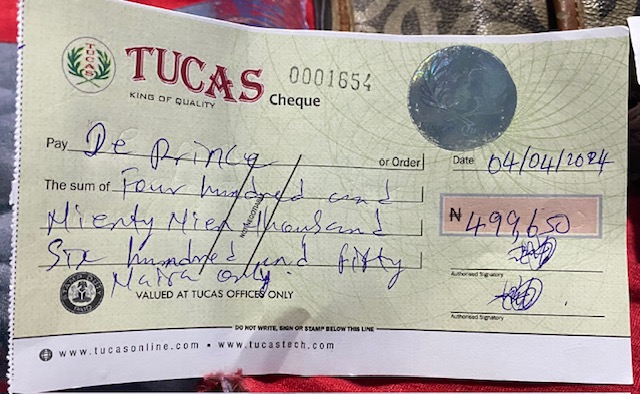 TUCAS
TUCAS
KING OF QUALITY
0001654
Cheque
Pay De Prince or Order
Date 04/04/2024
The sum of Four hundred and
Nienty Nien thousand
₦ 499,650
Six hundred and fifty
Naira only.
NOT NEGOTIABLE
Authorised Signatory
VALUED AT TUCAS OFFICES ONLY
Authorised Signatory
DO NOT WRITE, SIGN OR STAMP BELOW THIS LINE
www.tucasonline.com • www.tucastech.com